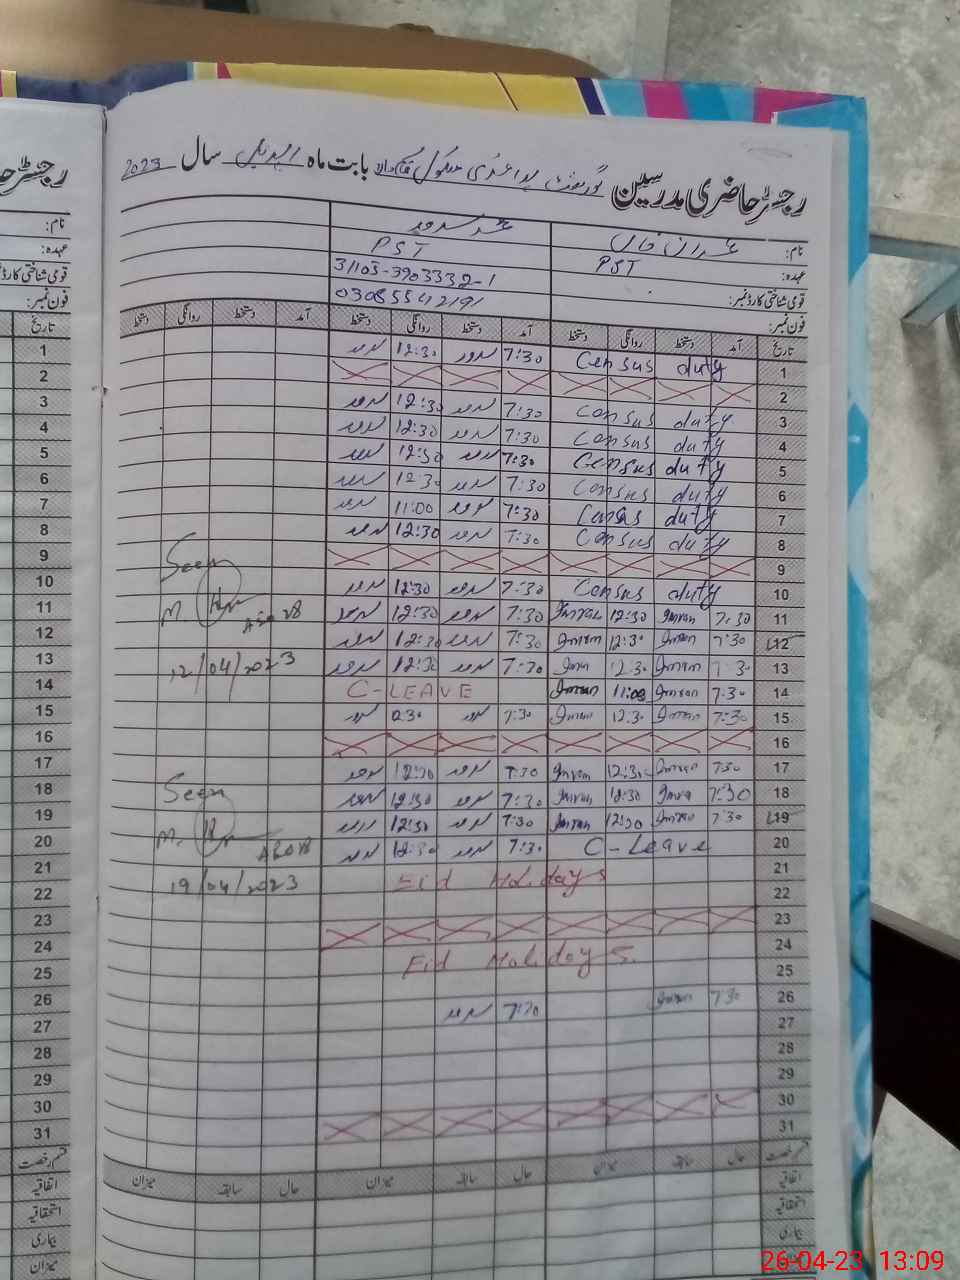 رجسٹر حاضری مدرسین گورنمنٹ پرائمری سکول بابت ماہ اپریل سال 2023
نام: عمران خان
عہدہ: PST PST
قومی شناختی کارڈ نمبر: 31103-3903332-1
فون نمبر: 03085542191
تاریخ آمد دستخط روانگی دستخط آمد دستخط روانگی دستخط آمد دستخط روانگی دستخط
1 سرمد 12:30 سرمد 7:30 Census duty 1
2 2
3 سرمد 12:30 سرمد 7:30 Census duty 3
4 سرمد 12:30 سرمد 7:30 Census duty 4
5 سرمد 12:30 سرمد 7:30 Census duty 5
6 سرمد 12:30 سرمد 7:30 Census duty 6
7 سرمد 11:00 سرمد 7:30 Census duty 7
8 سرمد 12:30 سرمد 7:30 Census duty 8
9 Seen 9
10 سرمد 12:30 سرمد 7:30 Census duty 10
11 M. سرمد 12:30 سرمد 7:30 Imran 12:30 Imran 7:30 11
12 سرمد 12:30 سرمد 7:30 Imran 12:30 Imran 7:30 12
13 12/04/2023 سرمد 12:30 سرمد 7:30 Imran 12:30 Imran 7:30 13
14 C-LEAVE Imran 11:00 Imran 7:30 14
15 سرمد سرمد 7:30 Imran 12:30 Imran 7:30 15
16 16
17 سرمد 12:30 سرمد 7:30 Imran 12:30 Imran 7:30 17
18 Seen سرمد 12:30 سرمد 7:30 Imran 12:30 Imran 7:30 18
19 سرمد 12:30 سرمد 7:30 Imran 12:30 Imran 7:30 19
20 M. سرمد 12:30 سرمد 7:30 C-Leave 20
21 19/04/2023 Eid Holidays 21
22 22
23 23
24 Eid Holidays 24
25 25
26 سرمد 7:30 Imran 7:30 26
27 27
28 28
29 29
30 30
31 31
قسم رخصت حال سابقہ میزان حال سابقہ میزان حال سابقہ میزان
اتفاقیہ
استحقاقیہ
بیماری
میزان
26-04-23 13:09